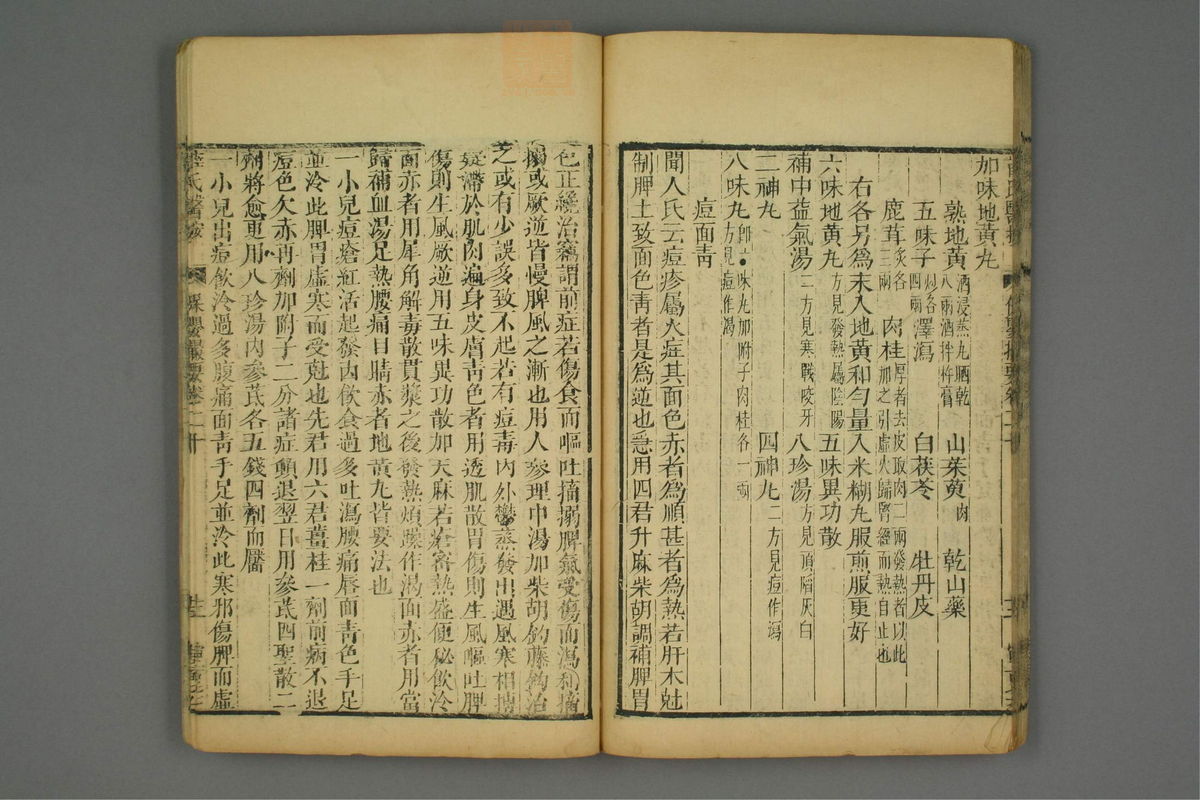 加味地黃丸
熟地黃 酒浸蒸九晒乾八兩酒拌杵膏 山茱萸肉 乾山藥
五味子 炒各四兩 澤瀉 白茯苓 牡丹皮
鹿茸 炙各三兩 肉桂 厚者去皮取肉二兩發熱者以此加之引虛火歸腎經而熱自止也
右各另為末入地黃和勻量入米糊丸服煎服更好
六味地黃丸 方見發熱屬陰陽 五味異功散
補中益氣湯 二方見寒戰咬牙 八珍湯 方見頂陷灰白
二神丸 四神丸 二方見痘作瀉
八味丸 即味丸加附子肉桂各一兩方見痘作渴
痘面靑
聞人氏云痘疹屬火症其面色赤者為順甚者為熱若肝木尅
制脾土致面色靑者是為逆也急用四君升麻柴胡調補脾胃
色正繞治竊謂前症若傷食而嘔吐搐搦脾氣受傷而瀉利搐
搦或厥逆皆慢脾風之漸也用人參理中湯加柴胡釣藤鈎治
之或有少誤多致不起若有痘毒內外鬱蒸發出遇風寒相搏
凝滯於肌肉遍身皮膚靑色者用透肌散胃傷則生風嘔吐脾
傷則生風厥逆用五味異功散加天麻若瘀蓄熱盛便秘飲冷
面赤者用犀角解毒散貫漿之後發熱煩躁作渴面赤者用當
歸補血湯足熱腰痛目睛赤者地黃丸皆要法也
一小兒痘瘡紅活起發因飲食過多吐瀉腹痛唇面靑色手足
並冷此脾胃虛寒而受尅也先君用六君薑桂一劑前病不退
痘色欠赤再劑加附子二分諸症頓退翌日用參芪四聖散二
劑將愈更用八珍湯內參芪各五錢四劑而靨
一小兒出痘飲冷過多腹痛面靑手足並冷此寒邪傷脾而虛